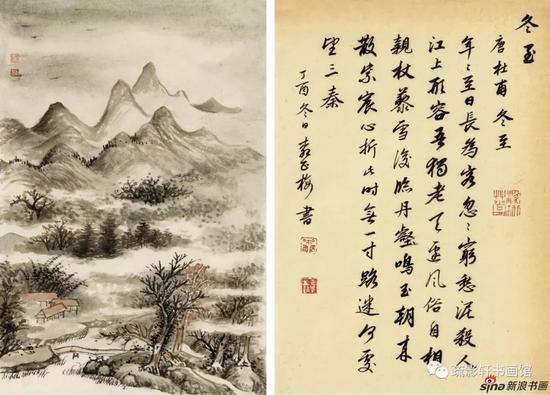 冬至
唐杜甫冬至
年〻至日長為客忽〻窮愁泥殺人
江上形容吾獨老天邊風俗自相
親杖藜雪後臨丹壑鳴玉朝来
散紫宸心折此時無一寸路迷何處
望三秦
丁酉冬日 梅書
疏影轩书画馆
sina新浪书画